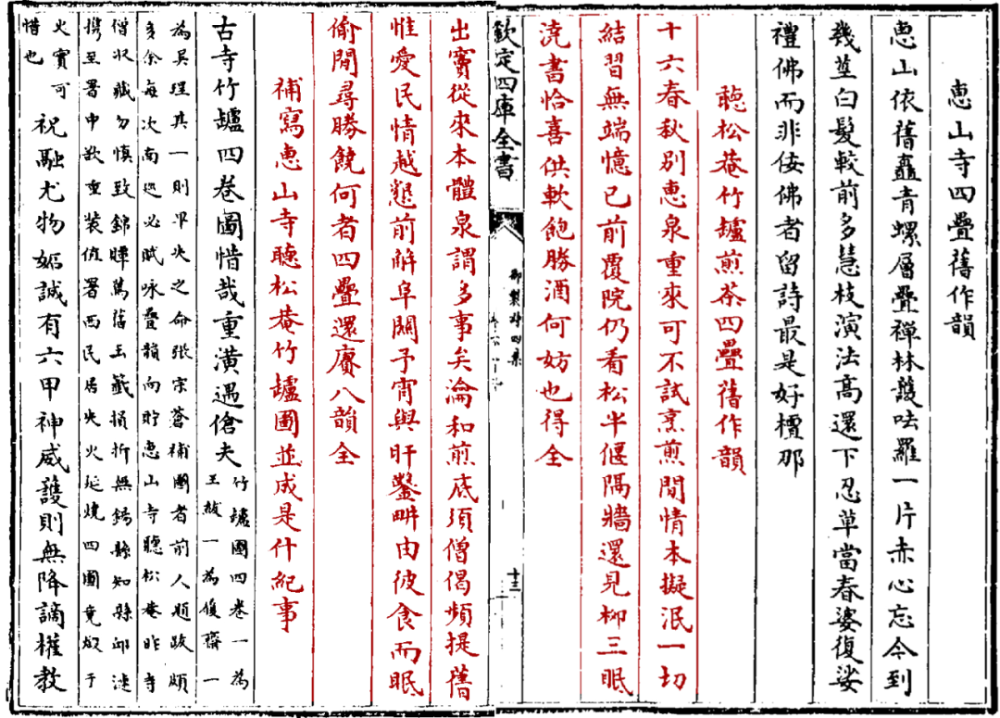 惠山寺四疊舊作韻
恵山依舊矗青螺層疊禪林護呿羅一片赤心忘今到
幾莖白髮較前多慧枝演法髙還下忍草當春婆復娑
禮佛而非佞佛者留詩最是好檀那
聴松菴竹罏煎茶四疊舊作韻
十六春秋别惠泉重來可不試烹煎閒情本擬泯一切
結習無端憶已前覆院仍看松半偃隔牆還見柳三眠
澆書恰喜供軟飽勝酒何妨也得全
欽定四庫全書
御製詩四集
十三
出竇從來本體泉謂多事矣瀹和煎底須僧偈頻提舊
惟愛民情越懇前觧阜關予宵與旰鑿畊由彼食而眠
偷閒尋勝饒何者四疊還賡八韻全
補寫惠山寺聴松菴竹罏圖並成是什紀事
古寺竹罏四卷圖惜哉重潢遇傖夫
竹罏圖四卷一為
王紱一為履齋一
為吳珵其一則早失之命張宗蒼補圖者前人題跋頗
多余每次南廵必賦咏疊韻向貯惠山寺聽松菴昨寺
僧收藏勿慎致錦贉蔫舊玉籖損折無錫縣知縣邱漣
携至署中欲重装值署西民居失火延燒四圖竟燬于
火實可
惜也
祝融尤物妬誠有六甲神威護則無降謫權教